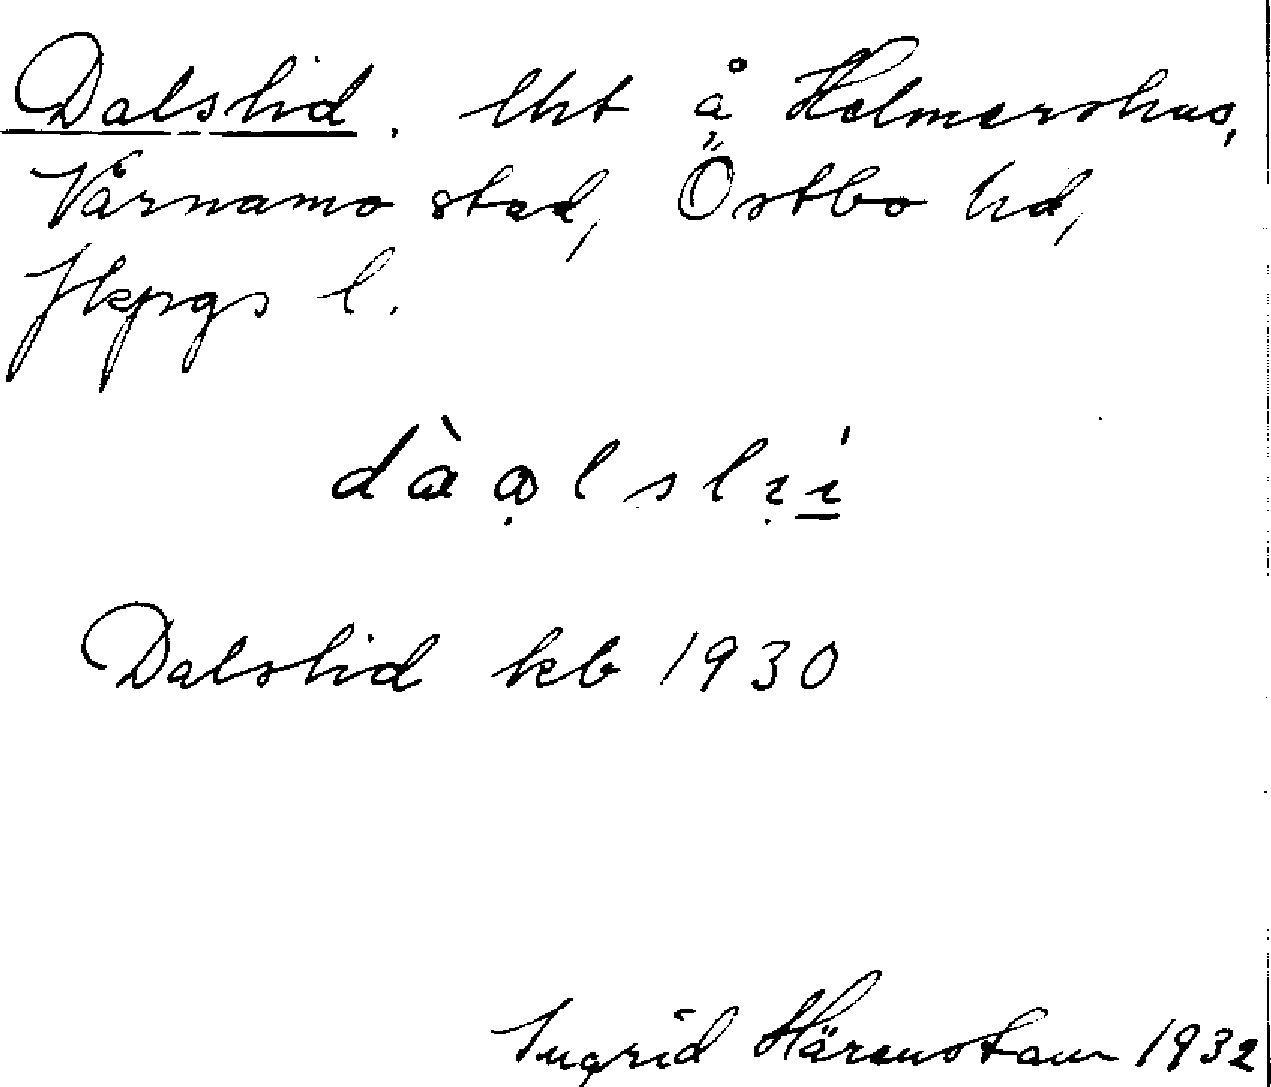 Dalslid. lht å Helmershus,
Värnamo stad, Östbo hd,
Jkpgs l.
dὰɷ̣lslịí̲
Dalslid kb 1930
Ingrid Härenstam 1932